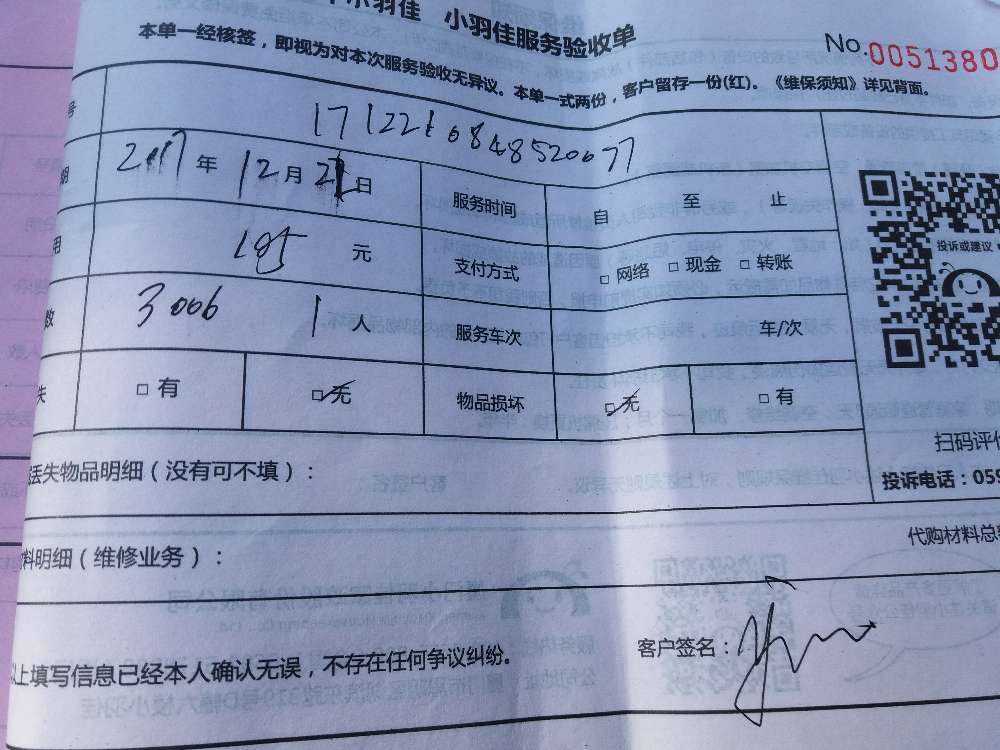 小羽佳 小羽佳服务验收单
No.0051380
本单一经核签，即视为对本次服务验收无异议。本单一式两份，客户留存一份(红)。《维保须知》详见背面。
号
2017年 12月 21日 服务时间 自 至 止
用 185 元 支付方式 □ 网络 □ 现金 □ 转账
数 3006 1 人 服务车次 车/次
失 □ 有 □ 无 物品损坏 □ 无 □ 有
投诉或建议
扫码评价
丢失物品明细（没有可不填）：
投诉电话：059
料明细（维修业务）：
代购材料总
以上填写信息已经本人确认无误，不存在任何争议纠纷。
客户签名：